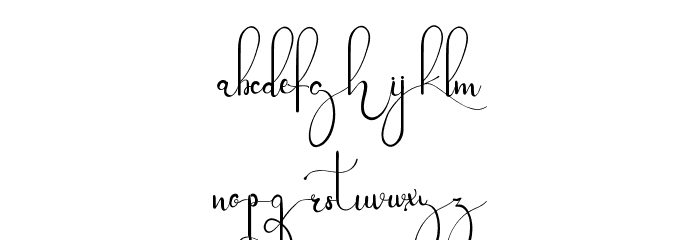 abcdefg h ijklm
nopq rstuvwxyz